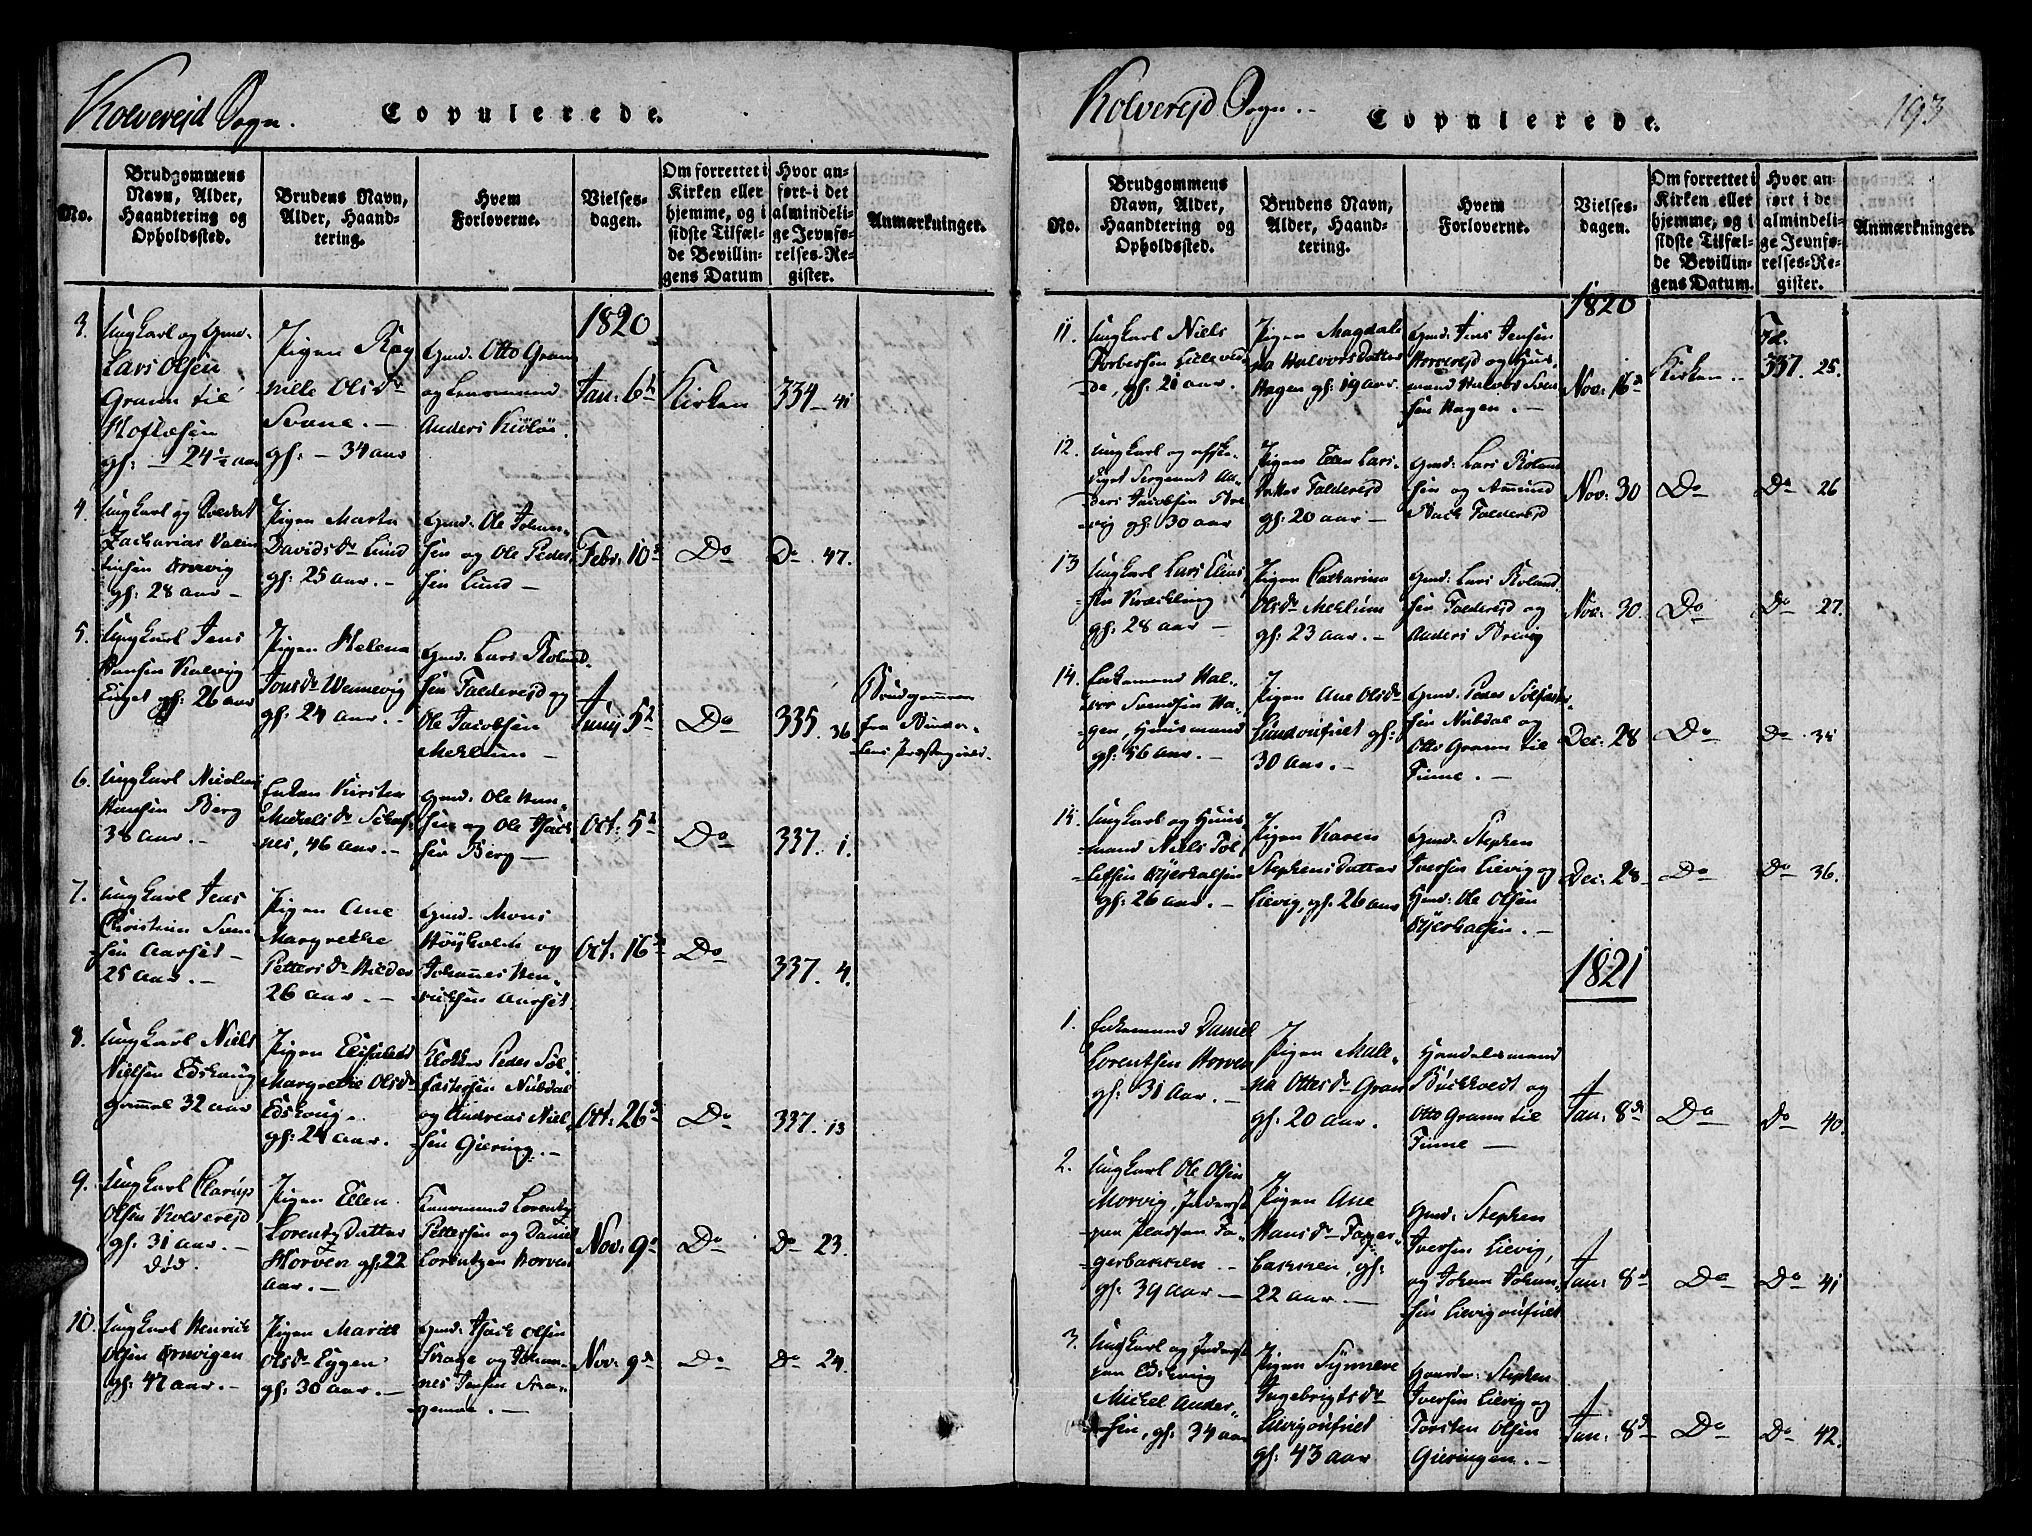 Kolverejd Sogn.
Copulerede.
No.
Brudgommens
Navn, Alder,
Haandtering og
Opholdssted.
Brudens Navn,
Alder, Haand-
tering.
Hvem
Forloverne.
Vielses-
dagen.
Om forrettet i
Kirken eller
hjemme, og i
sidste Tilfæl-
de Bevillin-
gens Datum
Hvor an-
ført i det
almindeli-
ge Jevnfø-
relses-Re-
gister.
Anmærkninger.
1820
3.
Ungkarl og Gmd.
Lars Olsen
Gran til
gf: 24½ aar
Pigen Rag
nille Olsdr
Svane.
gf: 34 aar
Gmd. Otto Gran
og Lensmand
Anders Kiöløi
Jan: 6h
Kirken
334 41
4.
Ungkarl og Soldat
Zacharias Valen
tinsen Ørnevig
gf: 28 aar
Pigen Marta
Davidsdr Lund
gf: 25 aar.
Gmd: Ole Johne-
sen og Ole Peder
sen Lund
Febr: 10d
Do
Do 47.
5.
Ungkarl Jens
Hansen Kalvig
gf: 26 aar
Pigen Helena
Jonsdr Wennevig
gf: 24 aar.
Gmd. Lars Roland-
sen Folderejd og
Ole Jacobsen
Meklum
Junij 5h
Do
335. 36
Brudgommen
fra Nærøe
Præstegield.
6.
Ungkarl Nicolai
Hansen Berg
38 aar.
Enken Kirsten
nes, 46 aar.
Gmd: Ole Han-
sen og Ole Isach
sen Berg
Oct: 5h
Do
337. 1.
7.
Ungkarl Jens
Christian Sven
sen Aarset
25 Aar.
Pigen Ane
Margrethe
Pettersdr
26 aar.
Gmd. Mons
Höyholm og
Johannes Hen-
richsen Aarset
Oct: 16d
Do
337. 4.
8.
Ungkarl Niels
Nielsen Edshaug
gammel 32 aar
Pigen Elisabeth
Margrethe Olsdr
Edshaug.
gf: 24 aar.
Klokker Peder Sol-
fastersen Nubdal
og Andreas Niel-
sen Gieringg.
Oct: 26d
Do
337. 13
9.
Ungkarl Clarup
Olsen Kolverejd
gf: 31 aar.
Død.
Pigen Ellen
Lorentz Datter
Horven gf: 22
aar.
Lensmand Lorentz
Pettersen og Daniel
Lorentzen Horven
Nov: 9d
Do
Do 23.
10.
Ungkarl Henrick
Olsen Ørnvigen
gf: 42 aar.
Pigen Maritt
Olsdr Eggen
gf: 30 aar.
Gmd: Isach Olsen
Strage og Johan-
nes Jensen Stra-
Nov: 9d
Do
Do 24.
Kolverejd Sogn.
Copulerede.
193
No.
Brudgommens
Navn, Alder,
Haandtering og
Opholdssted.
Brudens Navn,
Alder, Haand-
tering.
Hvem
Forloverne.
Vielses-
dagen.
Om forrettet i
Kirken eller
hjemme, og i
sidste Tilfæl-
de Bevillin-
gens Datum.
Hvor an-
ført i de
almindeli-
ge Jevnfø-
relses-Re-
gister.
Anmærkninger.
1820
11.
Ungkarl Niels
Torbersen Lilleved
de, gf: 21 aar.
Pigen Magdale
na Halvors Datter
Hagen gf: 19 aar.
Gmd: Jens Jensen
Horverejd og Huus-
mand Halvor Sven
sen Hagen.
Nov: 16d
Kirken
Fol.
337. 25.
12.
Ungkarl og afske-
diget Sergeant An-
ders Jacobsen Bre
vig gf: 30 aar
Pigen Ellen Lars-
datter Folderejd
gf: 20 aar
Gmd: Lars Roland
sen og Amund
Bach Folderejd
Nov: 30
Do
Do 26
13
Ungkarl Lars Elias
sen Kvæchling
gf: 28 aar
Pigen Catharina
Olsdr Meklum
gf: 23 aar.
Gmd: Lars Roland
sen Folderejd og
Anders Brevig
Nov: 30.
Do
Do 27.
14.
Enkemand Hal-
vor Svendsen Ha-
gen, Huusmand
gf: 56 aar.
Pigen Ane Olsdr
gf:
30 aar.
Gmd: Peder Solfaster
sen Nubdal og
Otto Gram til
Finne.
Dec: 28
Do
Do 35
15.
Ungkarl og Huus-
mand Niels Tol-
lefsen Bjerkalsen
gf: 26 aar.
Pigen Karen
Stephens Datter
Lievig, gf: 26 aar
Gmd: Stephen
Iversen Lievig og
Gmd: Ole Olsen
Bjerkalsen.
Dec: 28
Do
Do 36.
1821
1.
Enkemand Daniel
Lorentsen Horven
gf: 31 Aar.
Pigen Male-
na Ottesdr Gran
gf: 20 aar.
Handelsmand
Buchholdt og
Otto Gram til
Finne
Jan: 8de
Do
Do 40.
2.
Ungkarl Ole Olsen
Morvig, Inderst
paa Pladsen Fa-
gerbakken.
gf: 39 Aar
Pigen Ane
Hansdr Fager-
bakken, gf:
22 aar.
Gmd: Stephen
Iversen Lievig,
og Johan Johan-
sen Lievigonfiret
Jan: 8d
Do
Do 41
3.
Ungkarl og Inderst
paa Edshaug
Mickel Ander-
sen, gf: 34 aar
Pigen Synneve
Ingebrigtsdr
Lievigonfiret
gf: 43 aar
Gaardm: Stephen
Iversen Lievig og
Torsten Olsen
Gieringen.
Jan: 8d
Do
Do 42.